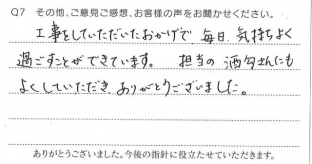 Q7 その他、ご意見ご感想、お客様の声をお聞かせください。
工事をしていただいたおかげで 毎日 気持ちよく
過ごすことができています。 担当の 酒匂さんにも
よくしていただき ありがとうございました。
ありがとうございました。今後の指針に役立たせていただきます。